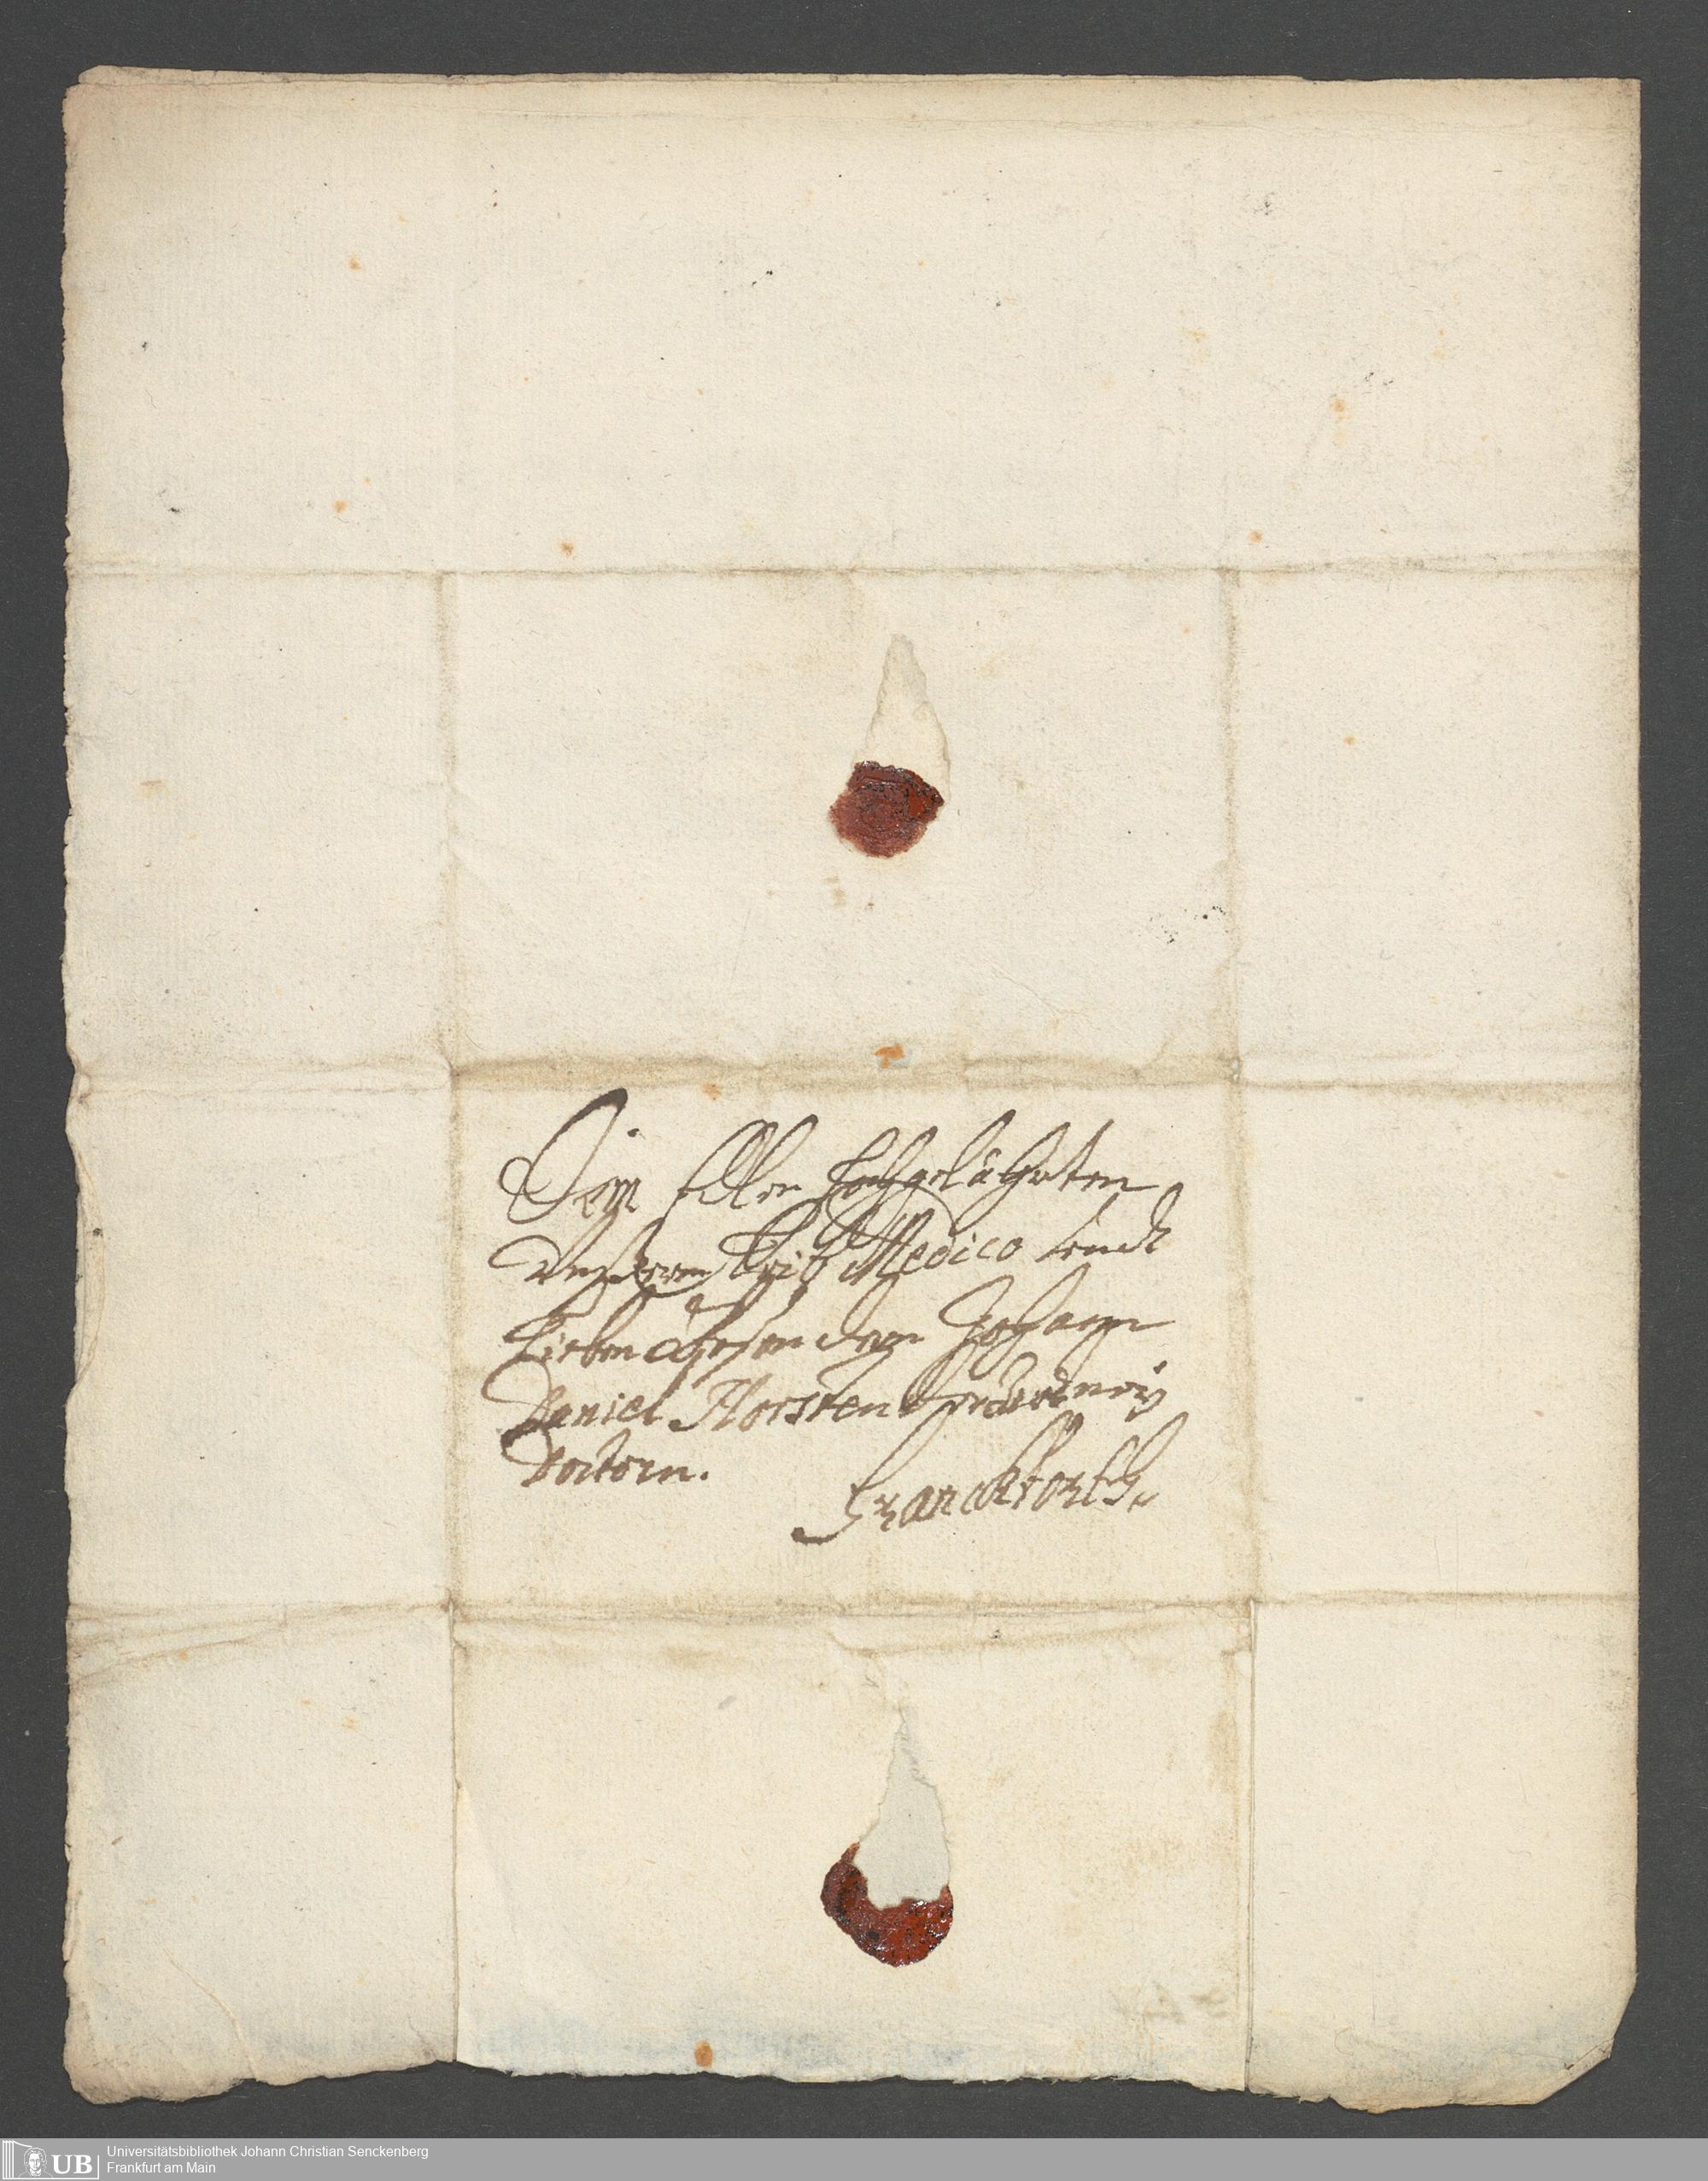 Dem Edlen Hochgelährten
Unserm Leib Medico undt
Lieben Getreuen Johann
Daniel Horsten der Medicin
Doctorn.
Franckforth.
UB Universitätsbibliothek Johann Christian Senckenberg
Frankfurt am Main